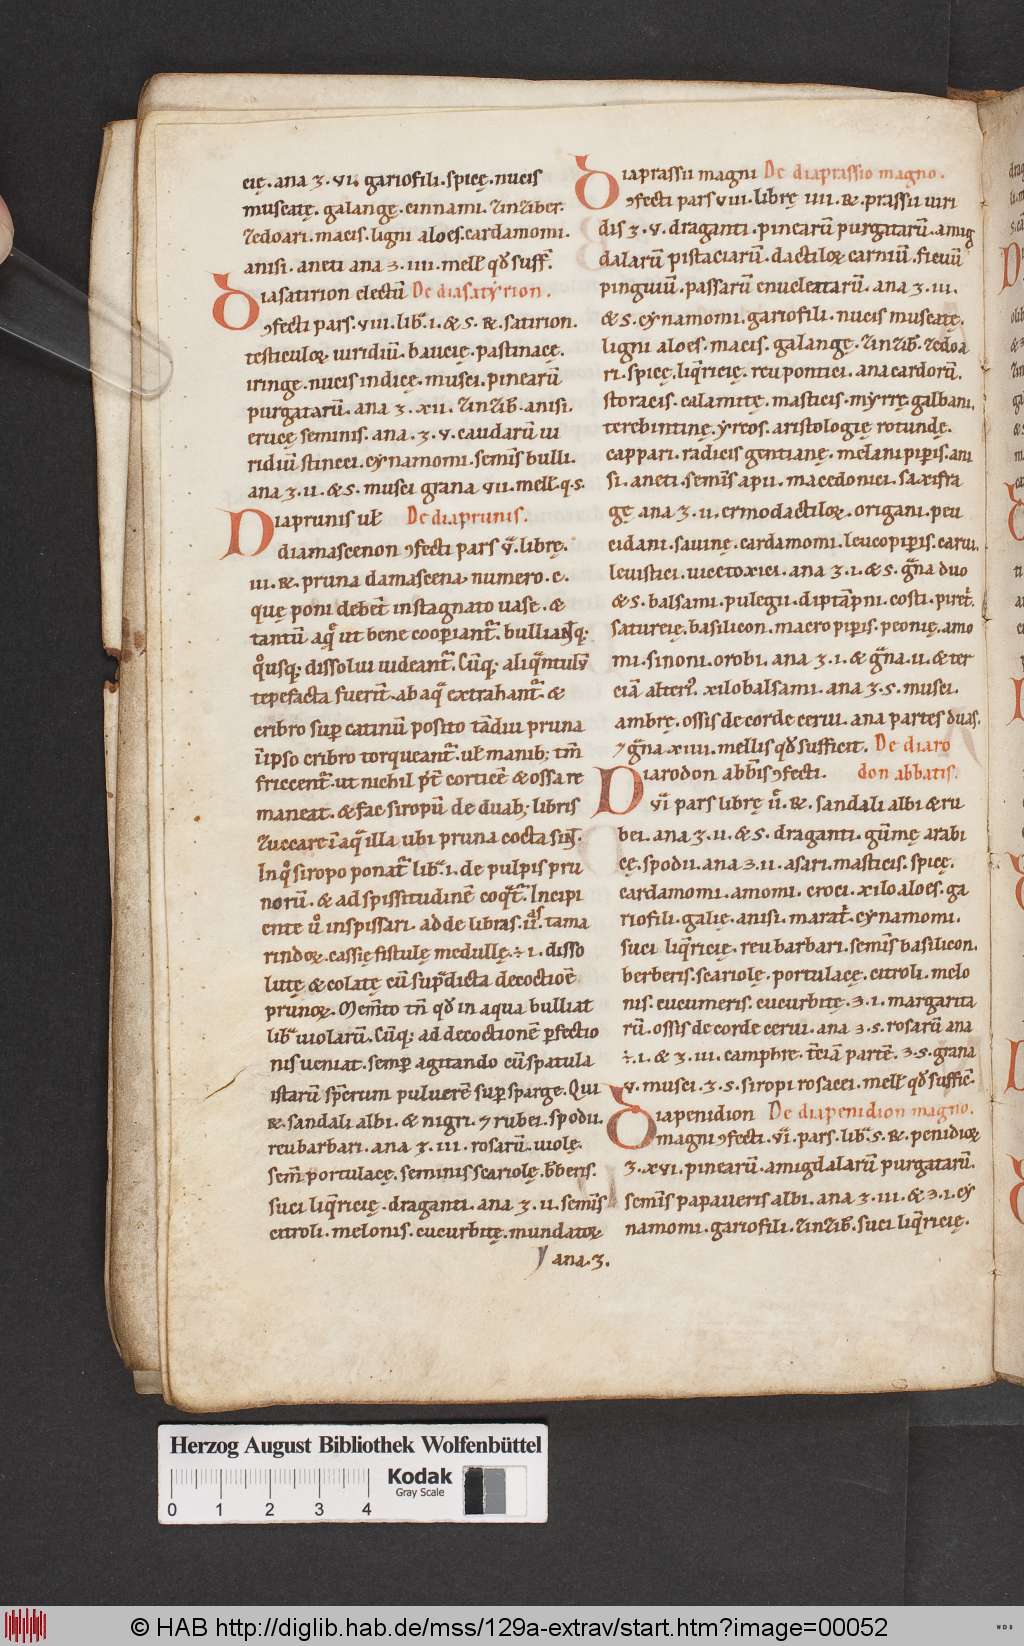 cię. ana ʒ. vi. gariofili. spicę. nucis
muscatę. galangę. cinnami. zinziber.
zedoari. macis. ligni aloes. cardamomi.
anisi. aneti ana ʒ. iiii. mell̄ qd̄ suff̄.
Diasatirion electū De diasatyrion.
ɔfecti pars. viii. lib̄. i. & s. R̶. satirion.
testiculoꝝ uiridiū. baucię. pastinacę.
iringe. nucis indicę. musci. pinearū
purgatarū. ana ʒ. xii. zinzib̄. anisi.
erucę seminis. ana. ʒ. v. caudarū ui
ridiū stincci. cynamomi. sem̄s bulli.
ana ʒ. ii. & s. musci grana vii. mell̄. q. s.
Diaprunis ul̄ De diaprunis.
diamascenon ɔfecti pars v̄. librę.
iii. R̶. pruna damascena numero. c.
quę poni debēt in stagnato uase. &
tantū aq̄ ut bene cooperiant̄. bulliant q;
qͦusq; dissolui uideant̄. Cūq; aliq̄ntulū
tepefacta fuerīt. ab aq̄ extrahant̄. &
cribro sup̄ catinū posito tādiu pruna
ī ipso cribro torqueant̄. ul̄ manib; tm̄
friccent̄. ut nichil p̄t̄ corticē & ossa re
maneat. & fac siropū de duab; libris
zuccare ī aq̄ illa ubi pruna cocta sint.
In qͦ siropo ponat̄ lib̄. i. de pulpis pru
norū. & ad spissitudinē coq̄t̄. Incipi
ente uͦ inspissari. adde libras. ii. tama
rindoꝝ. cassię fistulę medullę. ÷ i. disso
lutę & colatę cū sup̄dicta decoctiōe
prunoꝝ. Mem̄to tn̄ qd̄ in aqua bulliat
lib̄ uiolarū. Cūq; ad decoctionē ꝑfectio
nis ueniat. semꝑ agitando cū spatula
istarū sp̄erum puluerē sup̄ sparge. Qui
R̶. sandali albi. & nigri. ⁊ rubei. spodii.
reubarbari. ana ʒ. iii. rosarū. uiolę.
sem̄ portulacę. seminis scariolę. b̄beris.
suci liq̄ricię. draganti. ana ʒ. ii. sem̄s
citroli. melonis. cucurbitę. mundatoꝝ
ana. ʒ.
Diaprassii magni De diaprassio magno.
ɔfecti pars viii. librę iiii. R̶. prassii uiri
dis ʒ. v. draganti. pinearū purgatarū. amig
dalarū pistaciarū. dactiloꝝ carniū. ficuū
pinguiū. passarū enucleatarū. ana ʒ. iii.
& s. cynamomi. gariofili. nucis muscatę.
ligni aloes. macis. galangę. zinzib̄. zedoa
ri. spicę. liq̄ricię. reu pontici. anacardorū.
storacis. calamitę. masticis. myrrę. galbani.
terebintinę. yreos. aristologię rotundę.
cappari. radicis gentianę. melanipiꝑis. ani
si. aneti. sem̄s apii. macedonici. saxifra
gę ana ʒ. ii. ermodactiloꝝ. origani. peu
cidani. sauinę. cardamomi. leucopiꝑis. carui.
leuistici. uicctoxici. ana ʒ. i. & s. gͣna duo
& s. balsami. pulegii. diptāpni. costi. piret̄.
satureię. basilicon. macropiꝑis. peonię. amo
mi. sinoni. orobi. ana ʒ. i. & gͣna. ii. & ter
ciā alteri᾿. xilobalsami. ana ʒ. s. musci.
ambrę. ossis de corde cerui. ana partes duas.
⁊ gͣna xiiii. mellis qd̄ sufficit. De diaro
Diarodon abb̄is ɔfecti. don abbatis.
vī pars librę ii. R̶. sandali albi & ru
bei. ana ʒ. ii. & s. draganti. gūmę arabi
cę. spodii. ana ʒ. ii. asari. masticis. spicę.
cardamomi. amomi. croci. xiloaloes. ga
riofili. galię. anisi. marat̄. cynamomi.
suci liq̄ricię. reubarbari. sem̄s basilicon.
berberis. scariolę. portulacę. citroli. melo
nis. cucumeris. cucurbitę. ʒ. i. margarita
rū. ossis de corde cerui. ana ʒ. s. rosarū ana
÷. i. & ʒ. iii. camphre. t̄ciā partē. ʒ. s. grana
v. musci. ʒ. s. siropi rosacei. mell̄ qd̄ sufficē.
Diapenidion De diapenidion magno.
magni ɔfecti. vī. pars. lib̄. s. R̶. penidioꝝ
ʒ. xvi. pinearū. amigdalarū purgatarū.
sem̄s papaueris albi. ana ʒ. iii. & ʒ. i. cy
namomi. gariofili. zinzib̄. suci liq̄ricię.
Herzog August Bibliothek Wolfenbüttel
0 1 2 3 4
Kodak
Gray Scale
© HAB http://diglib.hab.de/mss/129a-extrav/start.htm?image=00052